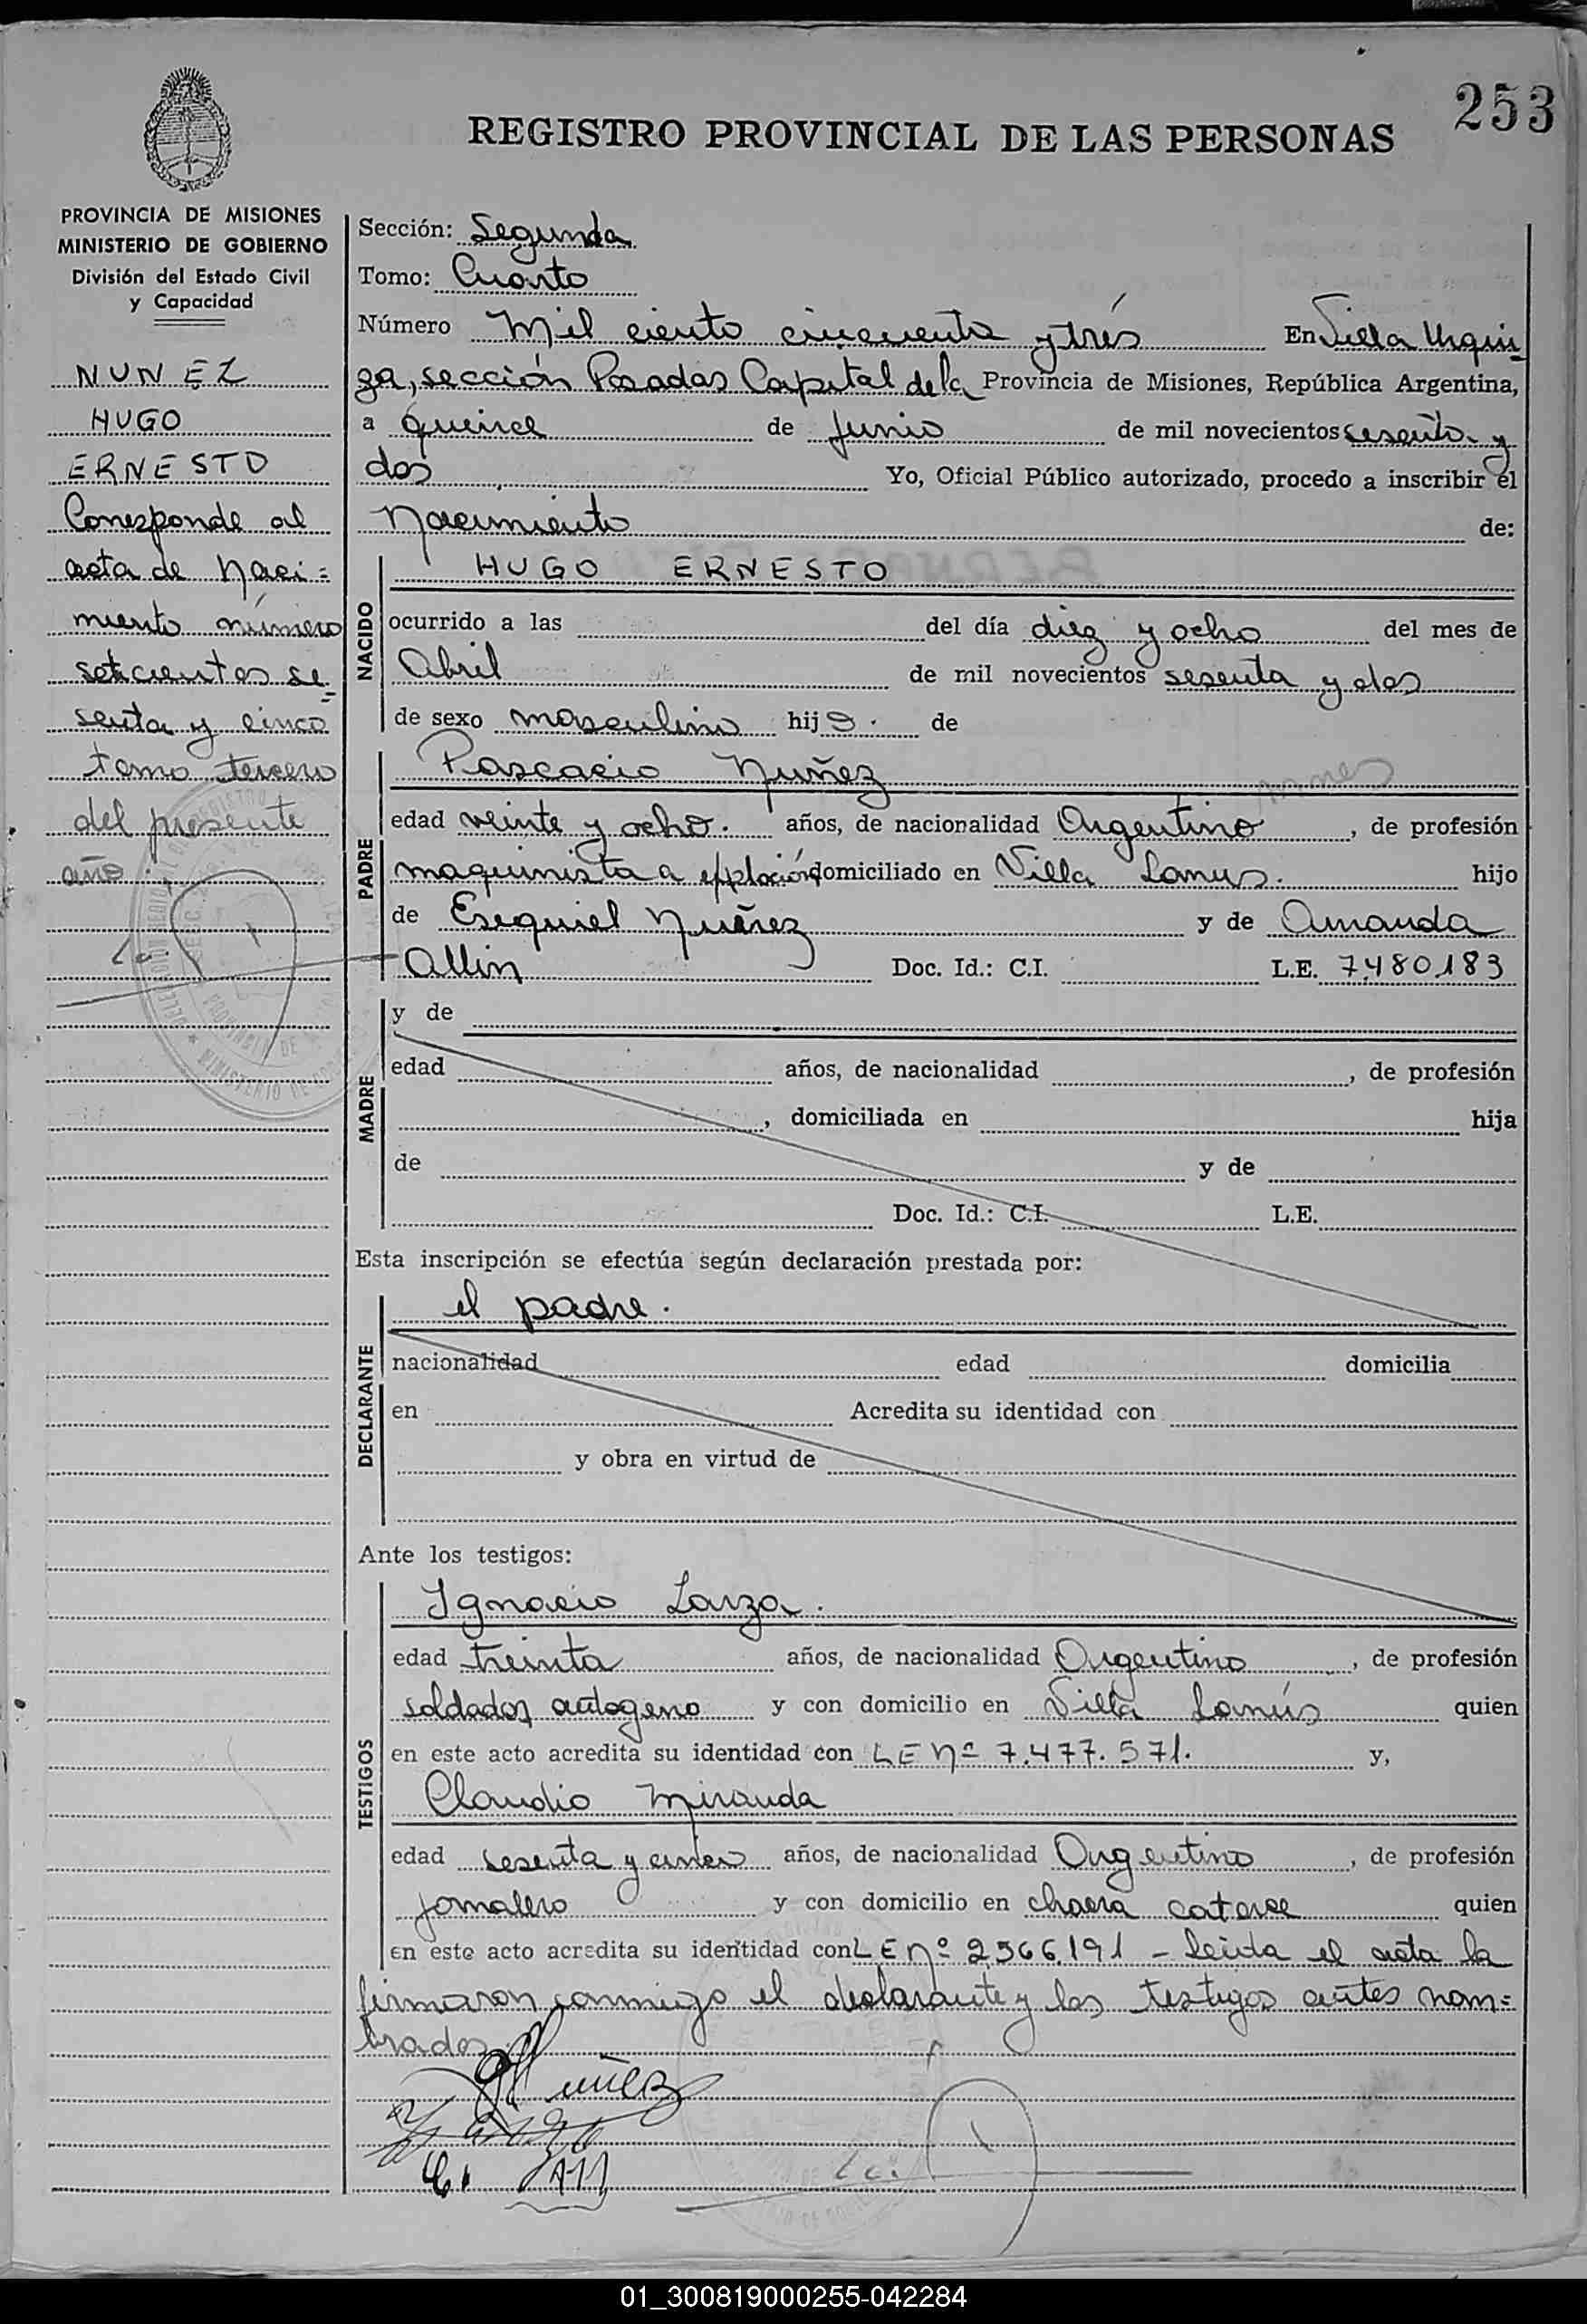 253
REGISTRO PROVINCIAL DE LAS PERSONAS
PROVINCIA DE MISIONES
MINISTERIO DE GOBIERNO
División del Estado Civil
y Capacidad
NUNEZ
HUGO
ERNESTO
Corresponde al
acta de Naci=
miento número
setcientos se=
senta y cinco
tomo tercero
del presente
año
Sección: Segunda
Tomo: Cuarto
Número Mil ciento cincuenta y trés En Villa Urqui=
za, sección Posadas Capital de la Provincia de Misiones, República Argentina,
a quince de Junio de mil novecientos sesenta y
dos Yo, Oficial Público autorizado, procedo a inscribir el
Nacimiento de:
NACIDO
HUGO ERNESTO
ocurrido a las del día diez y ocho del mes de
Abril de mil novecientos sesenta y dos
de sexo masculino hijo. de
PADRE
Pascacio Nuñez
edad veinte y ocho. años, de nacionalidad Argentino, de profesión
maquinista a explosión domiciliado en Villa Lanus. hijo
de Esequiel Nuñez y de Amanda
Allin Doc. Id.: C.I. L.E. 7.480.183
MADRE
y de
edad años, de nacionalidad , de profesión
, domiciliada en hija
de y de
Doc. Id.: C.I. L.E.
Esta inscripción se efectúa según declaración prestada por:
DECLARANTE
el padre.
nacionalidad edad domicilia
en Acredita su identidad con
y obra en virtud de
Ante los testigos:
TESTIGOS
Ignacio Lanza.
edad treinta años, de nacionalidad Argentino, de profesión
soldador autogeno y con domicilio en Villa Lanús quien
en este acto acredita su identidad con LE Nº 7.477.571. y,
Claudio Miranda
edad sesenta y cinco años, de nacionalidad Argentino, de profesión
jornalero y con domicilio en chacra catorce quien
en este acto acredita su identidad con LE nº 2.566.191 - Leida el acta la
firmaron conmigo el declarante y los testigos antes nom=
brados
Nuñez
01_300819000255-042284